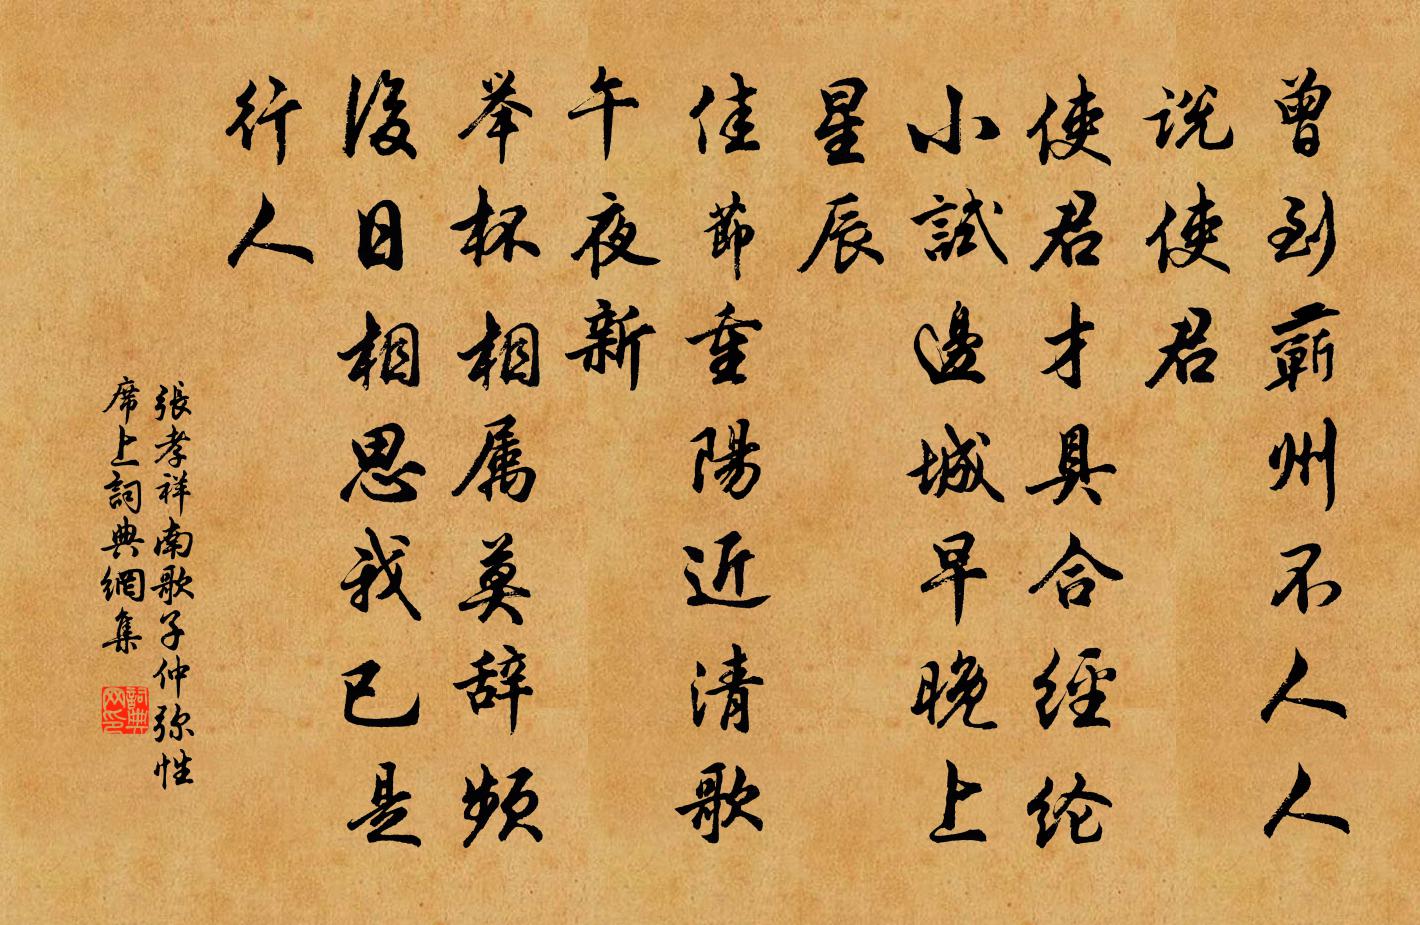 曾到蘄州不人人
说使君
使君才具合經纶
小試邊城早晚上
星辰
佳節重陽近清歌
午夜新
举杯相属莫辞頻
後日相思我已是
行人
張孝祥南歌子仲弥性
席上詞典網集
詞典
网印